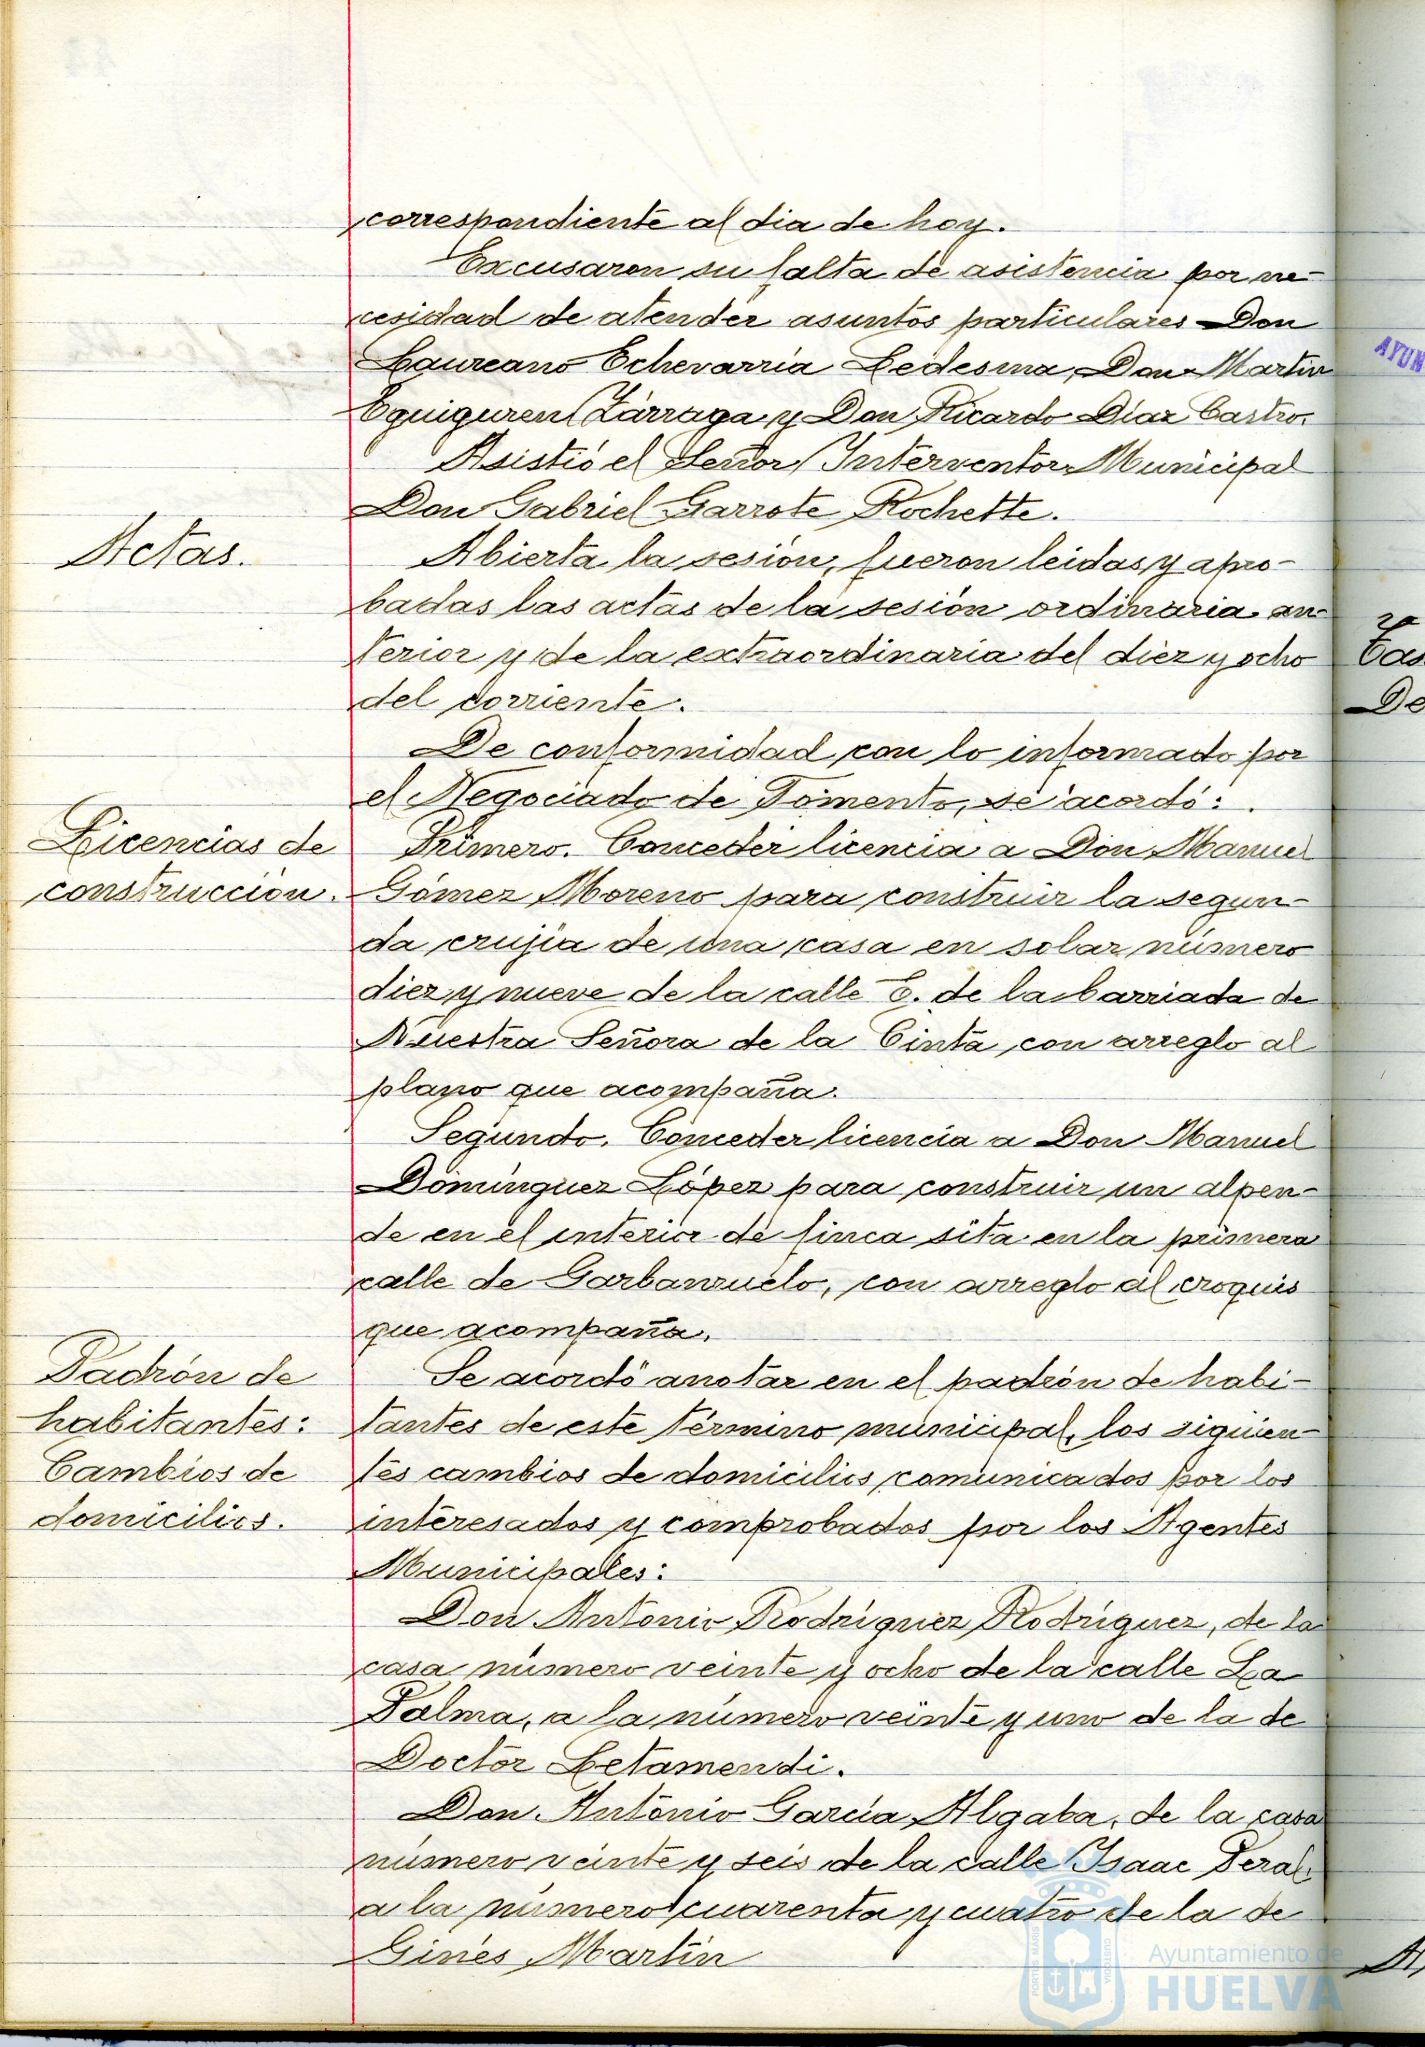 correspondiente al dia de hoy.
Excusaron su falta de asistencia por ne-
cesidad de atender asuntos particulares Don
Laureano Echevarría Ledesma, Don Martin
Eguiguren Zárraga y Don Ricardo Díaz Castro.
Asistió el Señor Interventor Municipal
Don Gabriel Garrote Rochette.
Actas.
Abierta la sesión, fueron leidas y apro-
badas las actas de la sesión ordinaria an-
terior y de la extraordinaria del diez y ocho
del corriente.
De conformidad con lo informado por
el Negociado de Fomento, se acordó:
Licencias de
construcción.
Primero. Conceder licencia a Don Manuel
Gómez Moreno para construir la segun-
da crujía de una casa en solar número
diez y nueve de la calle E. de la barriada de
Nuestra Señora de la Cinta con arreglo al
plano que acompaña.
Segundo. Conceder licencia a Don Manuel
Domínguez López para construir un alpen-
de en el interior de finca sita en la primera
calle de Garbanzuelo, con arreglo al croquis
que acompaña.
Padrón de
habitantes:
Cambios de
domicilios.
Se acordó anotar en el padrón de habi-
tantes de este término municipal, los siguien-
tes cambios de domicilios comunicados por los
interesados y comprobados por los Agentes
Municipales:
Don Antonio Rodríguez Rodríguez, de la
casa número veinte y ocho de la calle La
Palma, a la número veinte y uno de la de
Doctor Letamendi.
Don Antonio García Algaba, de la casa
número veinte y seis de la calle Isaac Peral,
a la número cuarenta y cuatro de la de
Ginés Martín
Ayuntamiento de
HUELVA
AYUN